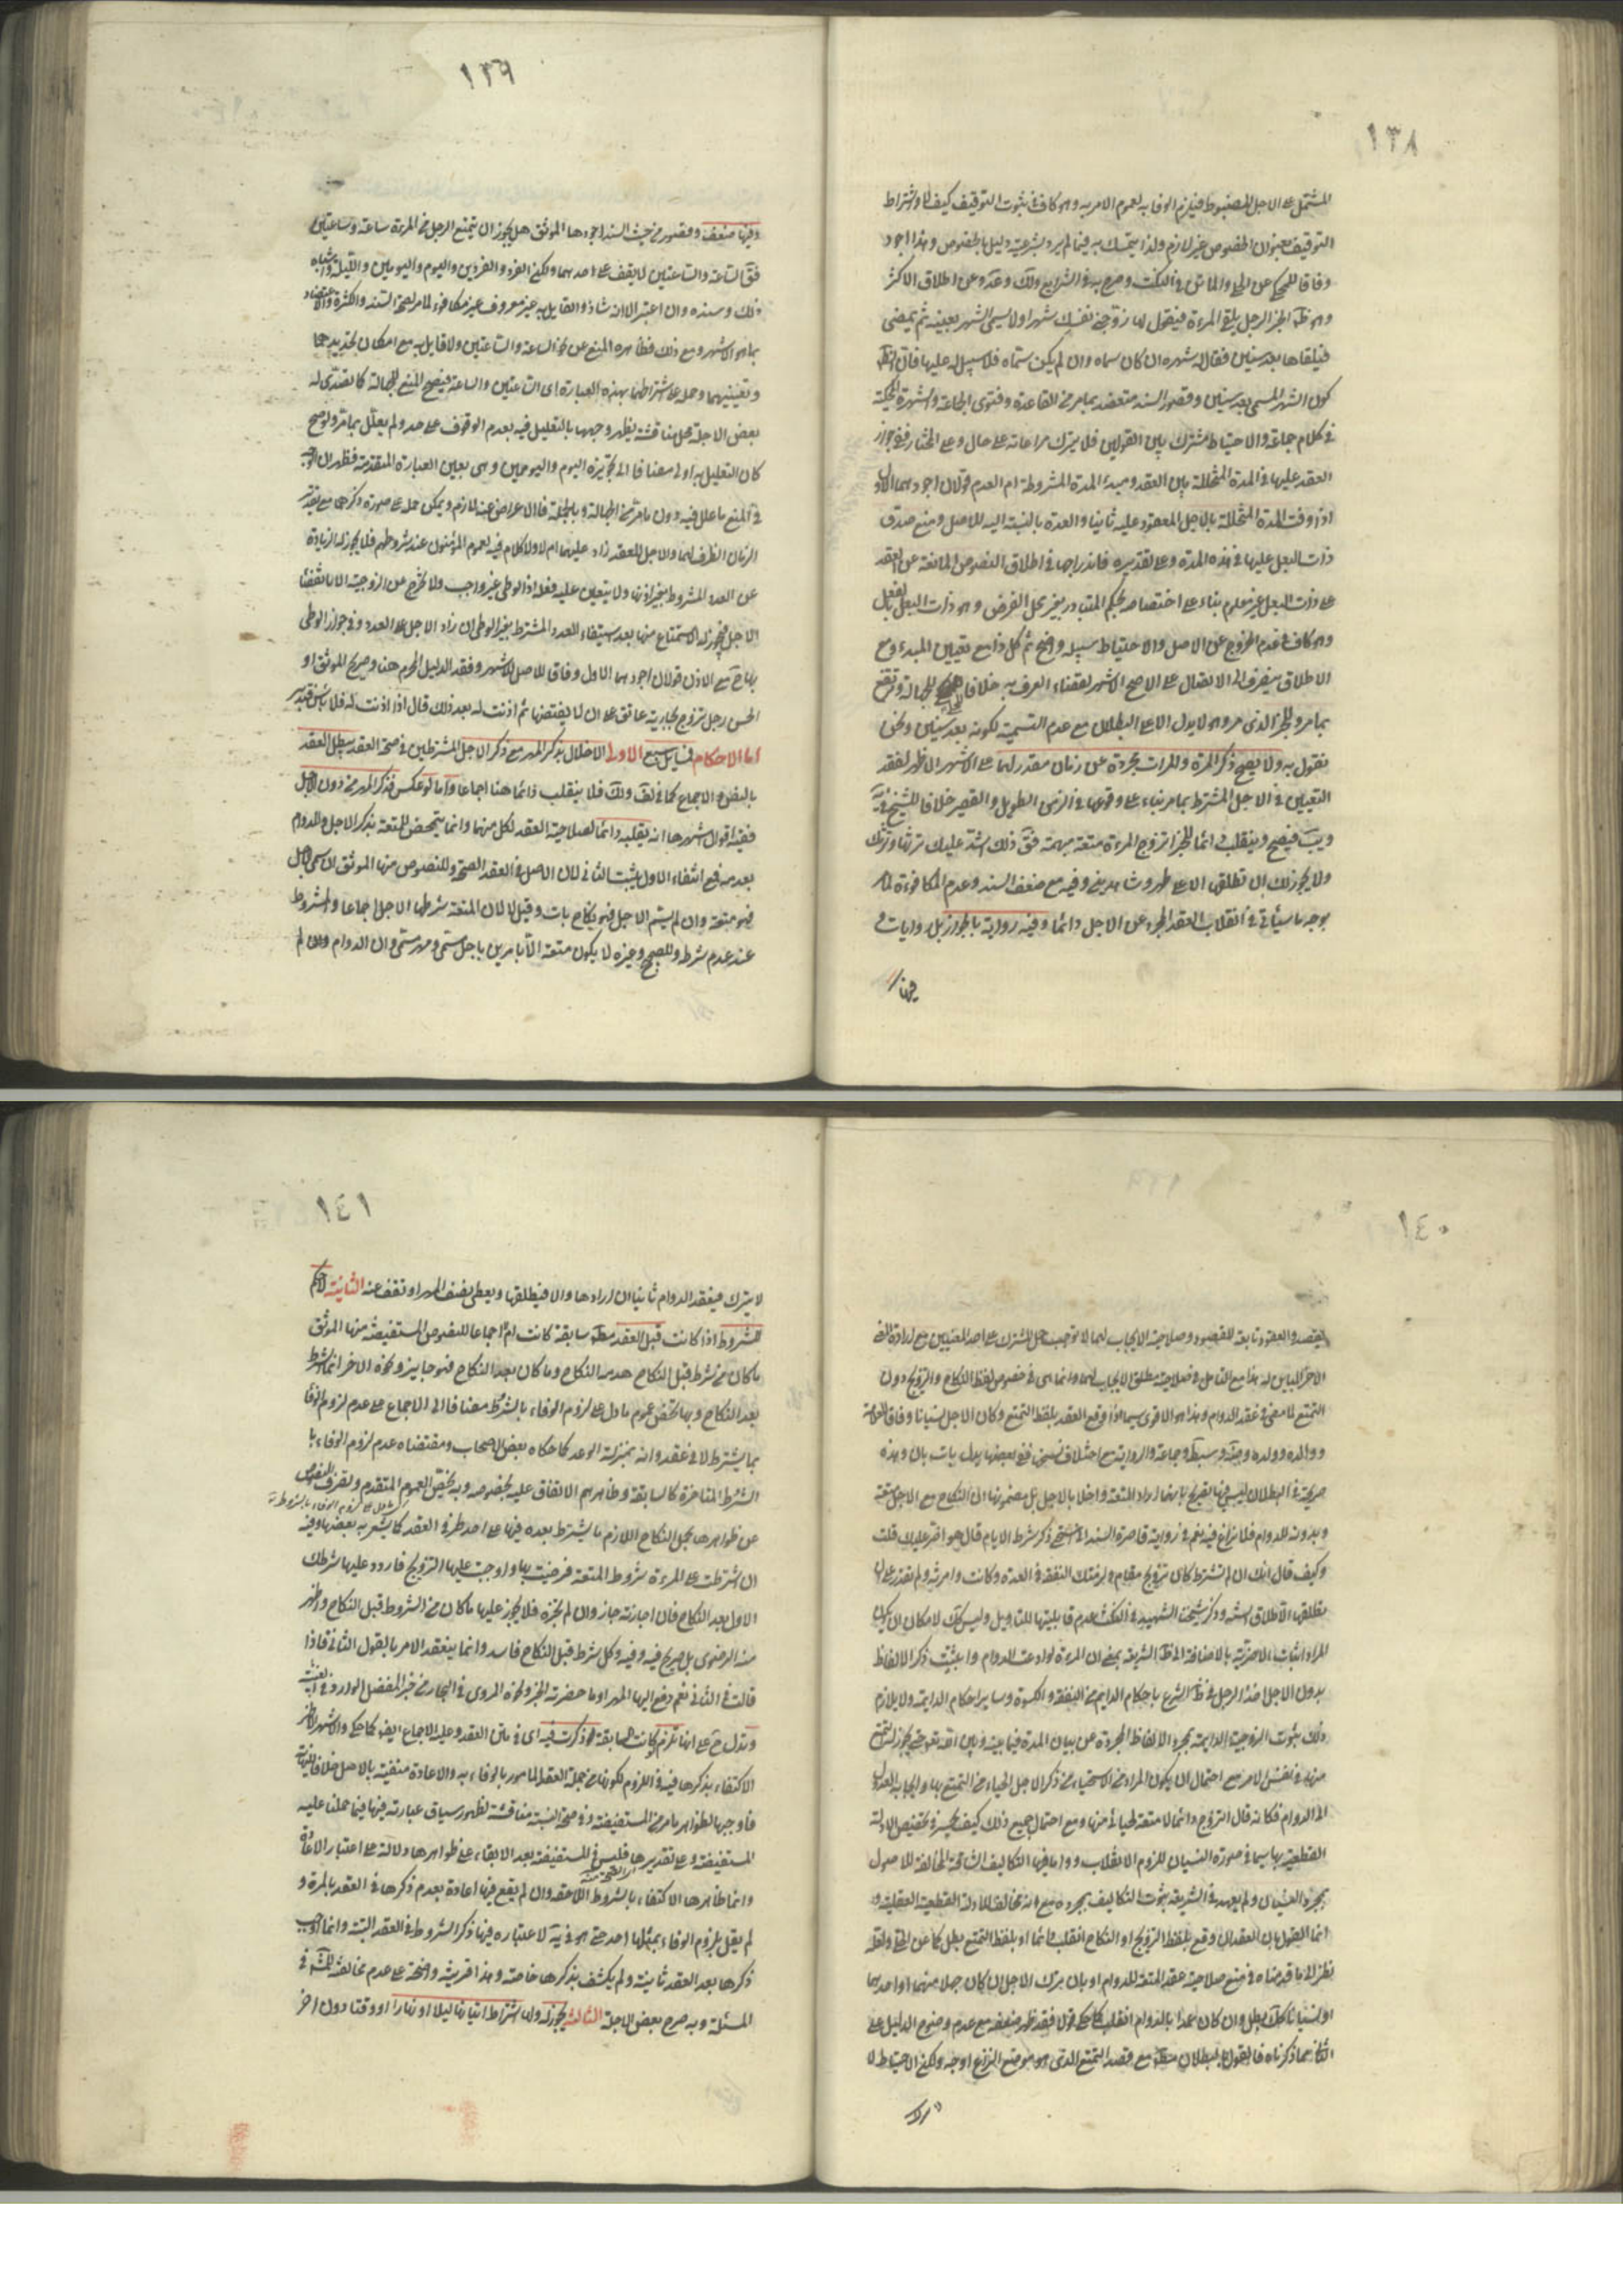 ١٣٨
المشتمل على الاجل المضبوط فيلزم الوفا به لعموم الامر به وهو كاف في ثبوت التوقيف كيف لا واشتراط
التوقيف بعنوان الخصوص غير لازم ولذا يتمسك به فيما لم يرد بشرعيته دليل بالخصوص وهذا اجود
وفاقا للمحكي عن الحلي والماتن في النكت وصرح به في الشرايع ولك وعده وعن اطلاق الاكثر
وهو ظ الخبر الرجل يلقى المرءة فيقول لها زوجيني نفسك شهرا ولا يسمى الشهر بعينه ثم يمضى
فيلقاها بعد سنين فقال له شهره ان كان سماه وان لم يكن سماه فلا سبيل له عليها فان الظ
كون الشهر المسمى بعد سنين وقصور السند منعقد بما مر من القاعدة وفتوى الجماعة والشهرة المحكية
في كلام جماعة والاحتياط مشترك بين القولين فلا يترك مراعاته على حال وعلى المختار ففي جواز
العقد عليها في المدة المتخللة بين العقد ومبدء المدة المشروطة ام العدم قولان اجودهما الاول
اذا وفت المدة المتخللة بالاجل المعقود عليه ثانيا والعدة بالنسبة اليه للاصل ومنع صدق
ذات البعل عليها في هذه المدة وعلى تقديره فاندراجها في اطلاق النصوص المانعة عن العقد
على ذات البعل غير معلوم بناء على اختصاصه بحكم التبادر بغير محل الفرض وهو ذات البعل بالفعل
وهو كاف في عدم الخروج عن الاصل والاحتياط سبيله واضح ثم كل ذا مع تعيين المبدء ومع
الاطلاق ينصرف الى الاتصال على الاصح الاشهر لقضاء العرف به خلافا للجهالة ويندفع
بما مر والخبر الذي مر وهو لا يدل الا على البطلان مع عدم التسمية لكونه بعد سنين ونحن
نقول به ولا يصح ذكر المرة والمرات مجردة عن زمان مقدر لهما على الاشهر الاظهر لفقد
التعيين في الاجل المشترط بما مر بناء على وقوعها في الزمن الطويل والقصير خلافا للشيخ في يه
ويب فيصح وينقلب دائما للخبر اتزوج المرءة متعة مبهمة فق ذلك اشد عليك ترثها وترثك
ولا يجوز لك ان تطلقها الا على طهر وشاهدين وفيه مع ضعف السند وعدم المكافوءة لما مر
يوجه ما سيأتي في انقلاب العقد المجرد عن الاجل دائما وفيه رواية بالجواز بل روايات و
فيها
١٣٩
وفيها ضعف وقصور من حيث السند اجودها الموثق هل يجوز ان يتمتع الرجل من المرءة ساعة وساعتين
فق الساعة والساعتين لا يوقف على حدهما ولكن العرد والعردين واليوم واليومين والليلة واشباه
ذلك وسنده وان اعتبر الا انه شاذ والقايل به غير معروف غير مكافوء لما مر لصحة السند والكثرة والاعتضاد
بما هو الاشهر ومع ذلك فظاهره المنع عن نحو الساعة والساعتين ولا قايل به مع امكان تحديدهما
وتعيينهما وحمله على اشتراطهما بهذه العبارة اى الساعتين والساعة فيصح المنع للجهالة كما تصدى له
بعض الاجلة محل مناقشة يظهر وجهها بالتعليل فيه بعدم الوقوف على حد ولم يعلل بما مر ولو صح
كان التعليل به اولى مضافا الى تجويزه اليوم واليومين وهى بعين العبارة المتقدمة فظهر ان الوجه
في المنع ما علل فيه دون ما مر من الجهالة وبالجملة فالاعراض عنه لازم ويمكن حمله على صورة ذكرهما مع تقدير
الزمان الظرف لهما والاجل للعقد زاد عليهما ام لا ولا كلام فيه لعموم المؤمنون عند شروطهم فلا يجوز له الزيادة
عن العدد المشروط بغير اذنها ولا يتعين عليه فعله اذ الوطى غير واجب ولا تخرج عن الزوجية الا بانقضاء
الاجل فيجوز له الاستمتاع منها بعد استيفاء العدد المشترط بغير الوطى ان زاد الاجل على العدد وفي جواز الوطى
بها ح مع الاذن قولان اجودهما الاول وفاقا للاصل الاشهر وفقد الدليل المحرم هنا وصريح الموثق او
الحسن رجل تزوج بجارية عاتق على ان لا يفتضها ثم اذنت له بعد ذلك قال اذا اذنت له فلا باس فتدبر
اما الاحكام فمسايل سبع الاولى الاخلال بذكر المهر مع ذكر الاجل المشترطين في صحة العقد يبطل العقد
بالنص والاجماع كما في لف ولك فلا ينقلب دائما هنا اجماعا واما لو عكس فذكر المهر من دون الاجل
ففيه اقوال اشهرها انه ينقلبه دائما لصلاحية العقد لكل منهما وانما يتمحض للمتعة بذكر الاجل وللدوام
بعدمه فمع انتفاء الاول يثبت الثاني لان الاصل في العقد الصحة وللنصوص منها الموثق ان سمى الاجل
فهو متعة وان لم يسم الاجل فهو نكاح بات وقيل لا لان المتعة شرطها الاجل اجماعا والمشروط
عند عدم شرطه وللصحيح وغيره لا يكون متعة الا بامرين باجل مسمى ومهر مسمى وان الدوام وان لم
١٤٠
يقصد والعقود تابعة للقصود وصلاحية الايجاب لهما لا توجب حمل المشترك على احد المعنيين مع ارادة الاخر
الاخر المباين له هذا مع التامل في صلاحية مطلق الايجاب لهما وانما هى في خصوص لفظ النكاح والتزويج دون
التمتع لما مضى في عقد الدوام وهذا هو الاقوى سيما اذا وقع العقد بلفظ التمتع وكان الاجل نسيانا وفاقا للعلامة
ووالده وولده وجماعة والرواية مع اختلاف نسخها ففي بعضها بدل بات بان وهذه
صريحة في البطلان ليس فيها تصريح بانهما ارادا المتعة واخلا بالاجل بل مضمونها ان النكاح مع الاجل متعة
وبدونه للدوام فلا نزاع فيه نعم في رواية قاصرة السند انى استحيى ذكر شرط الايام قال هو اضر عليك قلت
وكيف قال انك ان لم تشترط كان تزويج مقام ولزمتك النفقة في العدة وكانت وارثه ولم تقدر على ان
تطلقها الا طلاق السنة وذكر شيخنا الشهيد في النكت عدم قابليتها للتاويل وليس كك لامكان ان يكون
المراد اثبات الاضرية بالاضافة الى ظ الشريعة بمعنى ان المرءة لو ادعت الدوام واثبتت ذكر الالفاظ
بدون الاجل اخذ الرجل في ظ الشرع باحكام الدائم من النفقة والكسوة وساير احكام الدايمة ولا يلازم
ذلك ثبوت الزوجية الدايمة بمجرد الالفاظ المجردة عن بيان المدة فيما بينه وبين الله تع حتى يجوز له التمتع
منها في نفس الامر مع احتمال ان يكون المراد من الاستحياء من ذكر الاجل الحياء من التمتع بها وايجابه العدول
الى الدوام فكانه قال اتزوج دائما لا متعة لحيائي منها ومع احتمال جميع ذلك كيف يجسر في تخصيص الادلة
القطعية بها سيما في صورة النسيان للزوم الانقلاب دواما فيها التكاليف الشاقة المخالفة للاصول
بمجرد النسيان ولم يعهد في الشريعة ثبوت التكاليف بمجرده مع انه مخالف للادلة القطعية العقلية و
اما القول بان العقد ان وقع بلفظ التزويج او النكاح انقلب دائما او بلفظ التمتع بطل كما عن الحلي ولعله
نظر الى ما قدمناه في منع صلاحية عقد المتعة للدوام او بان ترك الاجل ان كان جهلا منهما او احدهما
او نسيانا كك بطل وان كان عمدا بالدوام انقلب كما حكى قولا فقد ظهر ضعفه مع عدم وضوح الدليل على
الثاني مما ذكرناه فالقول بالبطلان مط مع قصد التمتع الذى هو موضع النزاع اوجه ولكن الاحتياط لا
يترك
١٤١
لا يترك فيعقد الدوام ثانيا ان ارادها والا فيطلقها ويعطى نصف المهر او تعف عنه الثانية لا حكم
للشروط اذا كانت قبل العقد مط سابقة كانت ام لا اجماعا للنصوص المستفيضة منها الموثق
ما كان من شرط قبل النكاح هدمه النكاح وما كان بعد النكاح فهو جايز ونحوه الاخر انما الشرط
بعد النكاح وبها يخص عموم ما دل على لزوم الوفاء بالشرط مضافا الى الاجماع على عدم لزوم الوفا
بما يشترط لا في عقد وانه بمنزلة الوعد كما حكاه بعض الاصحاب ومقتضاه عدم لزوم الوفاء با
الشرط المتاخرة كالسابقة وظاهرهم الاتفاق عليه بخصوصه وبه يخص العموم المتقدم ويصرف النصوص
عن ظواهرها بحمل النكاح اللازم ما يشترط بعده فيها على احد طرفى العقد كما يشعر به بعضها وفيه
ان اشترطت على المرءة شروط المتعة فرضيت بها واوجبت عليها التزويج فاردد عليها شرطك
الاول بعد النكاح فان اجازته جاز وان لم تجزه فلا يجوز عليها ما كان من الشروط قبل النكاح واظهر
منه الرضوى بل صريح فيه وفيه وكل شرط قبل النكاح فاسد وانما ينعقد الامر بالقول الثاني فاذا
قالت في الثاني نعم دفع اليها المهر او ما حضر منه الخبر ونحوه المروى في البحار من خبر المفضل الوارد في الغيبة
وتدل ح على انها تلزم لو كانت السابقة ذكرت فيه اى في متن العقد وعليه الاجماع ايضا كما حكى والاشهر الاظهر
الاكتفاء بذكرها فيه في اللزوم لكونها من جملة العقد المامور بالوفاء به والاعادة منفية بالاصل خلافا للنهاية
فاوجبها لظواهر ما مر من المستفيضة وفي صحة النسبة مناقشة لظهور سياق عبارته فيها فيما حملنا عليه
المستفيضة وعلى تقديرها فليس في المستفيضة بعد الابقاء على ظواهرها دلالة على اعتبار الاعادة
وانما ظاهرها الاكتفاء بالشروط اللاحقة وان لم يقع فيها اعادة بعدم ذكرها في العقد بالمرة و
لم يقل بلزوم الوفاء بمثلها احد حتى هو في يه لاعتباره فيها ذكر الشروط في العقد البتة وانما اوجب
ذكرها بعد العقد ثانية ولم يكتف بذكرها خاصة وهذا قرينة واضحة على عدم مخالفته للمشهور في
المسئلة وبه صرح بعض الاجلة الثالثة يجوز له ولها اشتراط اتيانها ليلا او نهارا او وقتا دون اخر